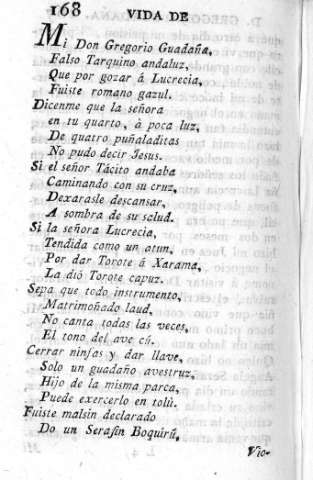 168 VIDA DE
Mi Don Gregorio Guadaña,
Falso Tarquino andaluz,
Que por gozar á Lucrecia,
Fuiste romano gazul.
Dicenme que la señora
en tu quarto, à poca luz,
De quatro puñaladitas
No pudo decir Jesus.
Si el señor Tácito andaba
Caminando con su cruz,
Dexarasle descansar,
A sombra de su salud.
Si la señora Lucrecia,
Tendida como un atun,
Por dar Torote á Xarama,
La dió Torote capuz.
Sepa que todo instrumento,
Matrimoñado laud,
No canta todas las veces,
El tono del ave cú.
Cerrar ninfas y dar llave,
Solo un guadaño avestruz,
Hijo de la misma parca,
Puede exercerlo en tolú.
Fuiste malsin declarado
Do un Serafin Boquirú,
Vio-